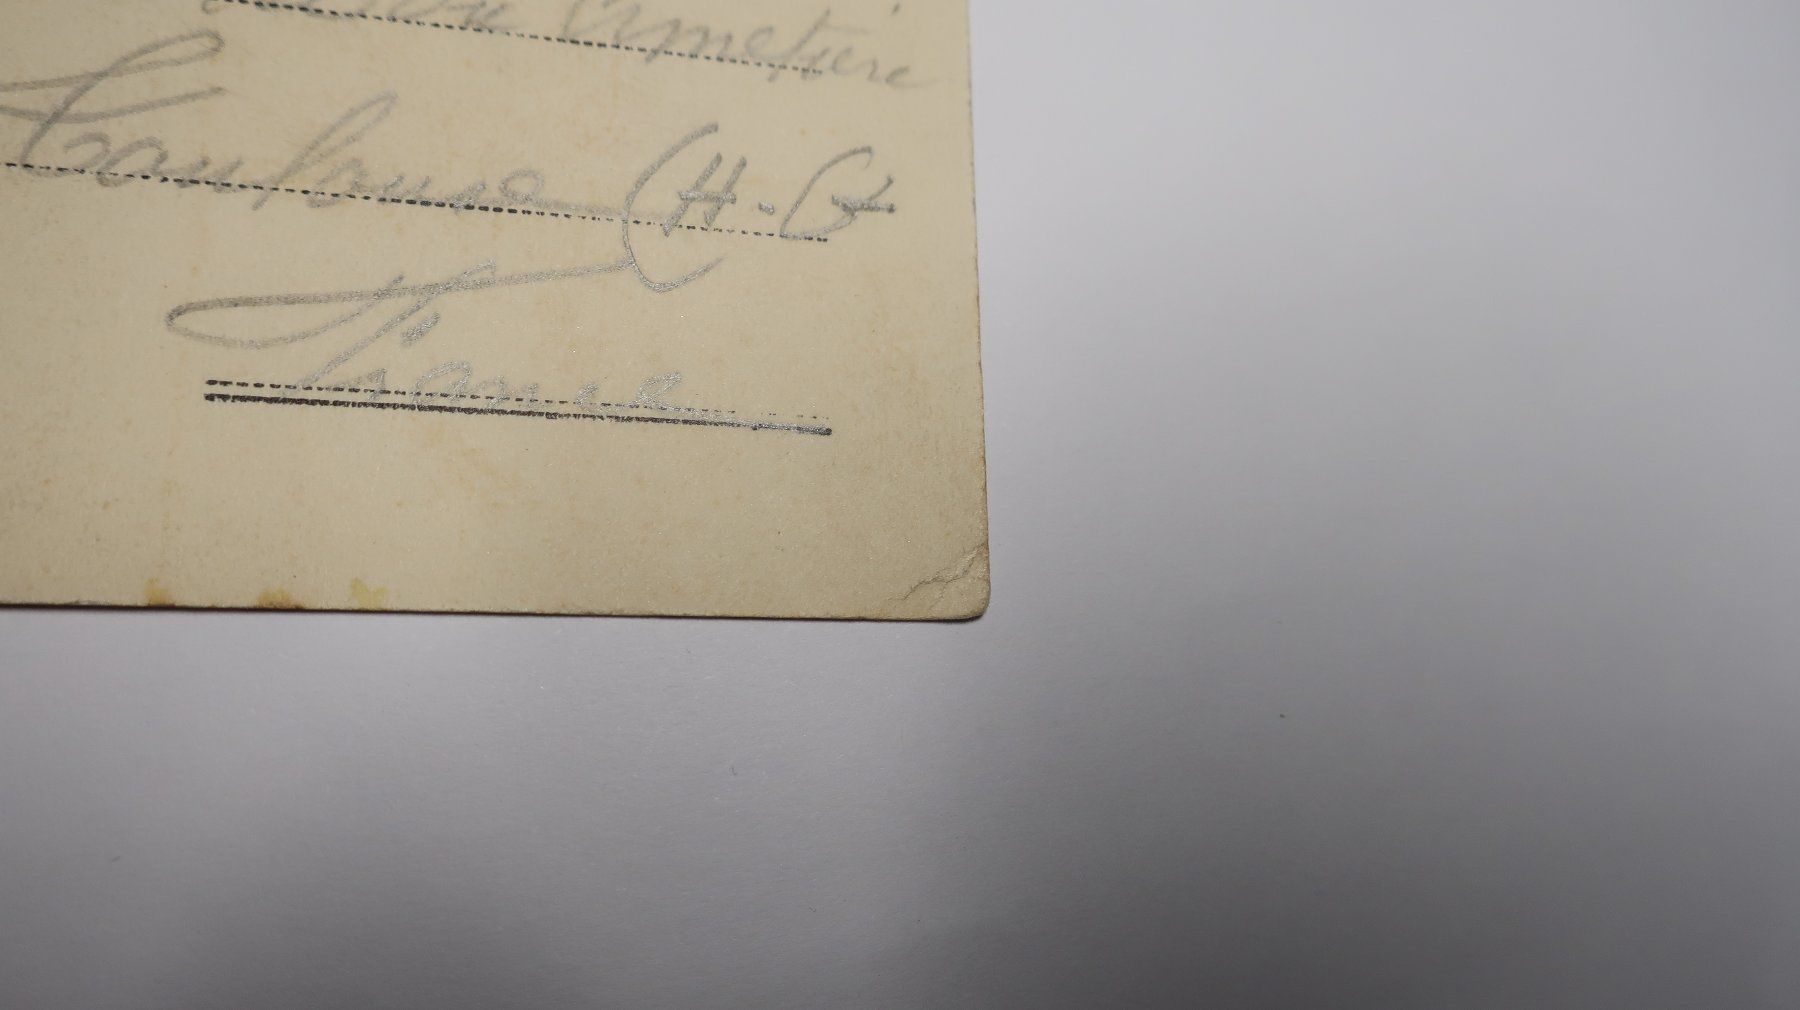 Cimetière
Toulouse (H-G
France